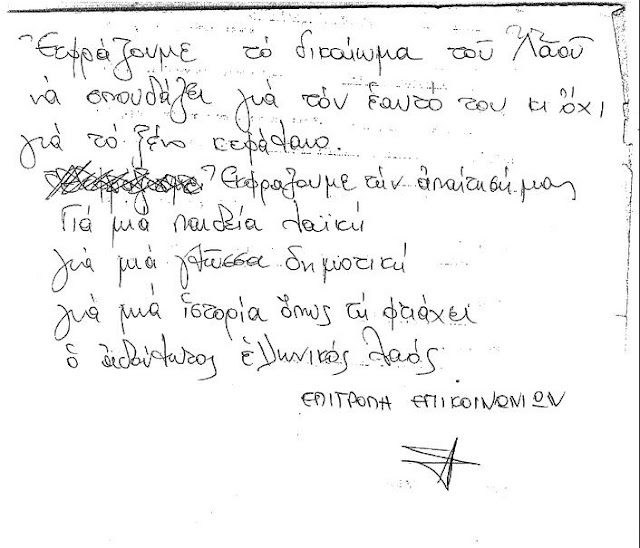 Ἐκφράζουμε τό δικαίωμα τοῦ Λαοῦ
νά σπουδάζει γιά τόν ἑαυτό του κι ὄχι
γιά τό ξένο κεφάλαιο.
Ἐκφράζουμε τήν ἀπαίτησή μας
Γιά μιά παιδεία λαϊκή
γιά μιά γλῶσσα δημοτική
γιά μιά ἱστορία ὅπως τή φτιάχνει
ὁ ἀδούλωτος ἑλληνικός λαός
ΕΠΙΤΡΟΠΗ ΕΠΙΚΟΙΝΩΝΙΩΝ